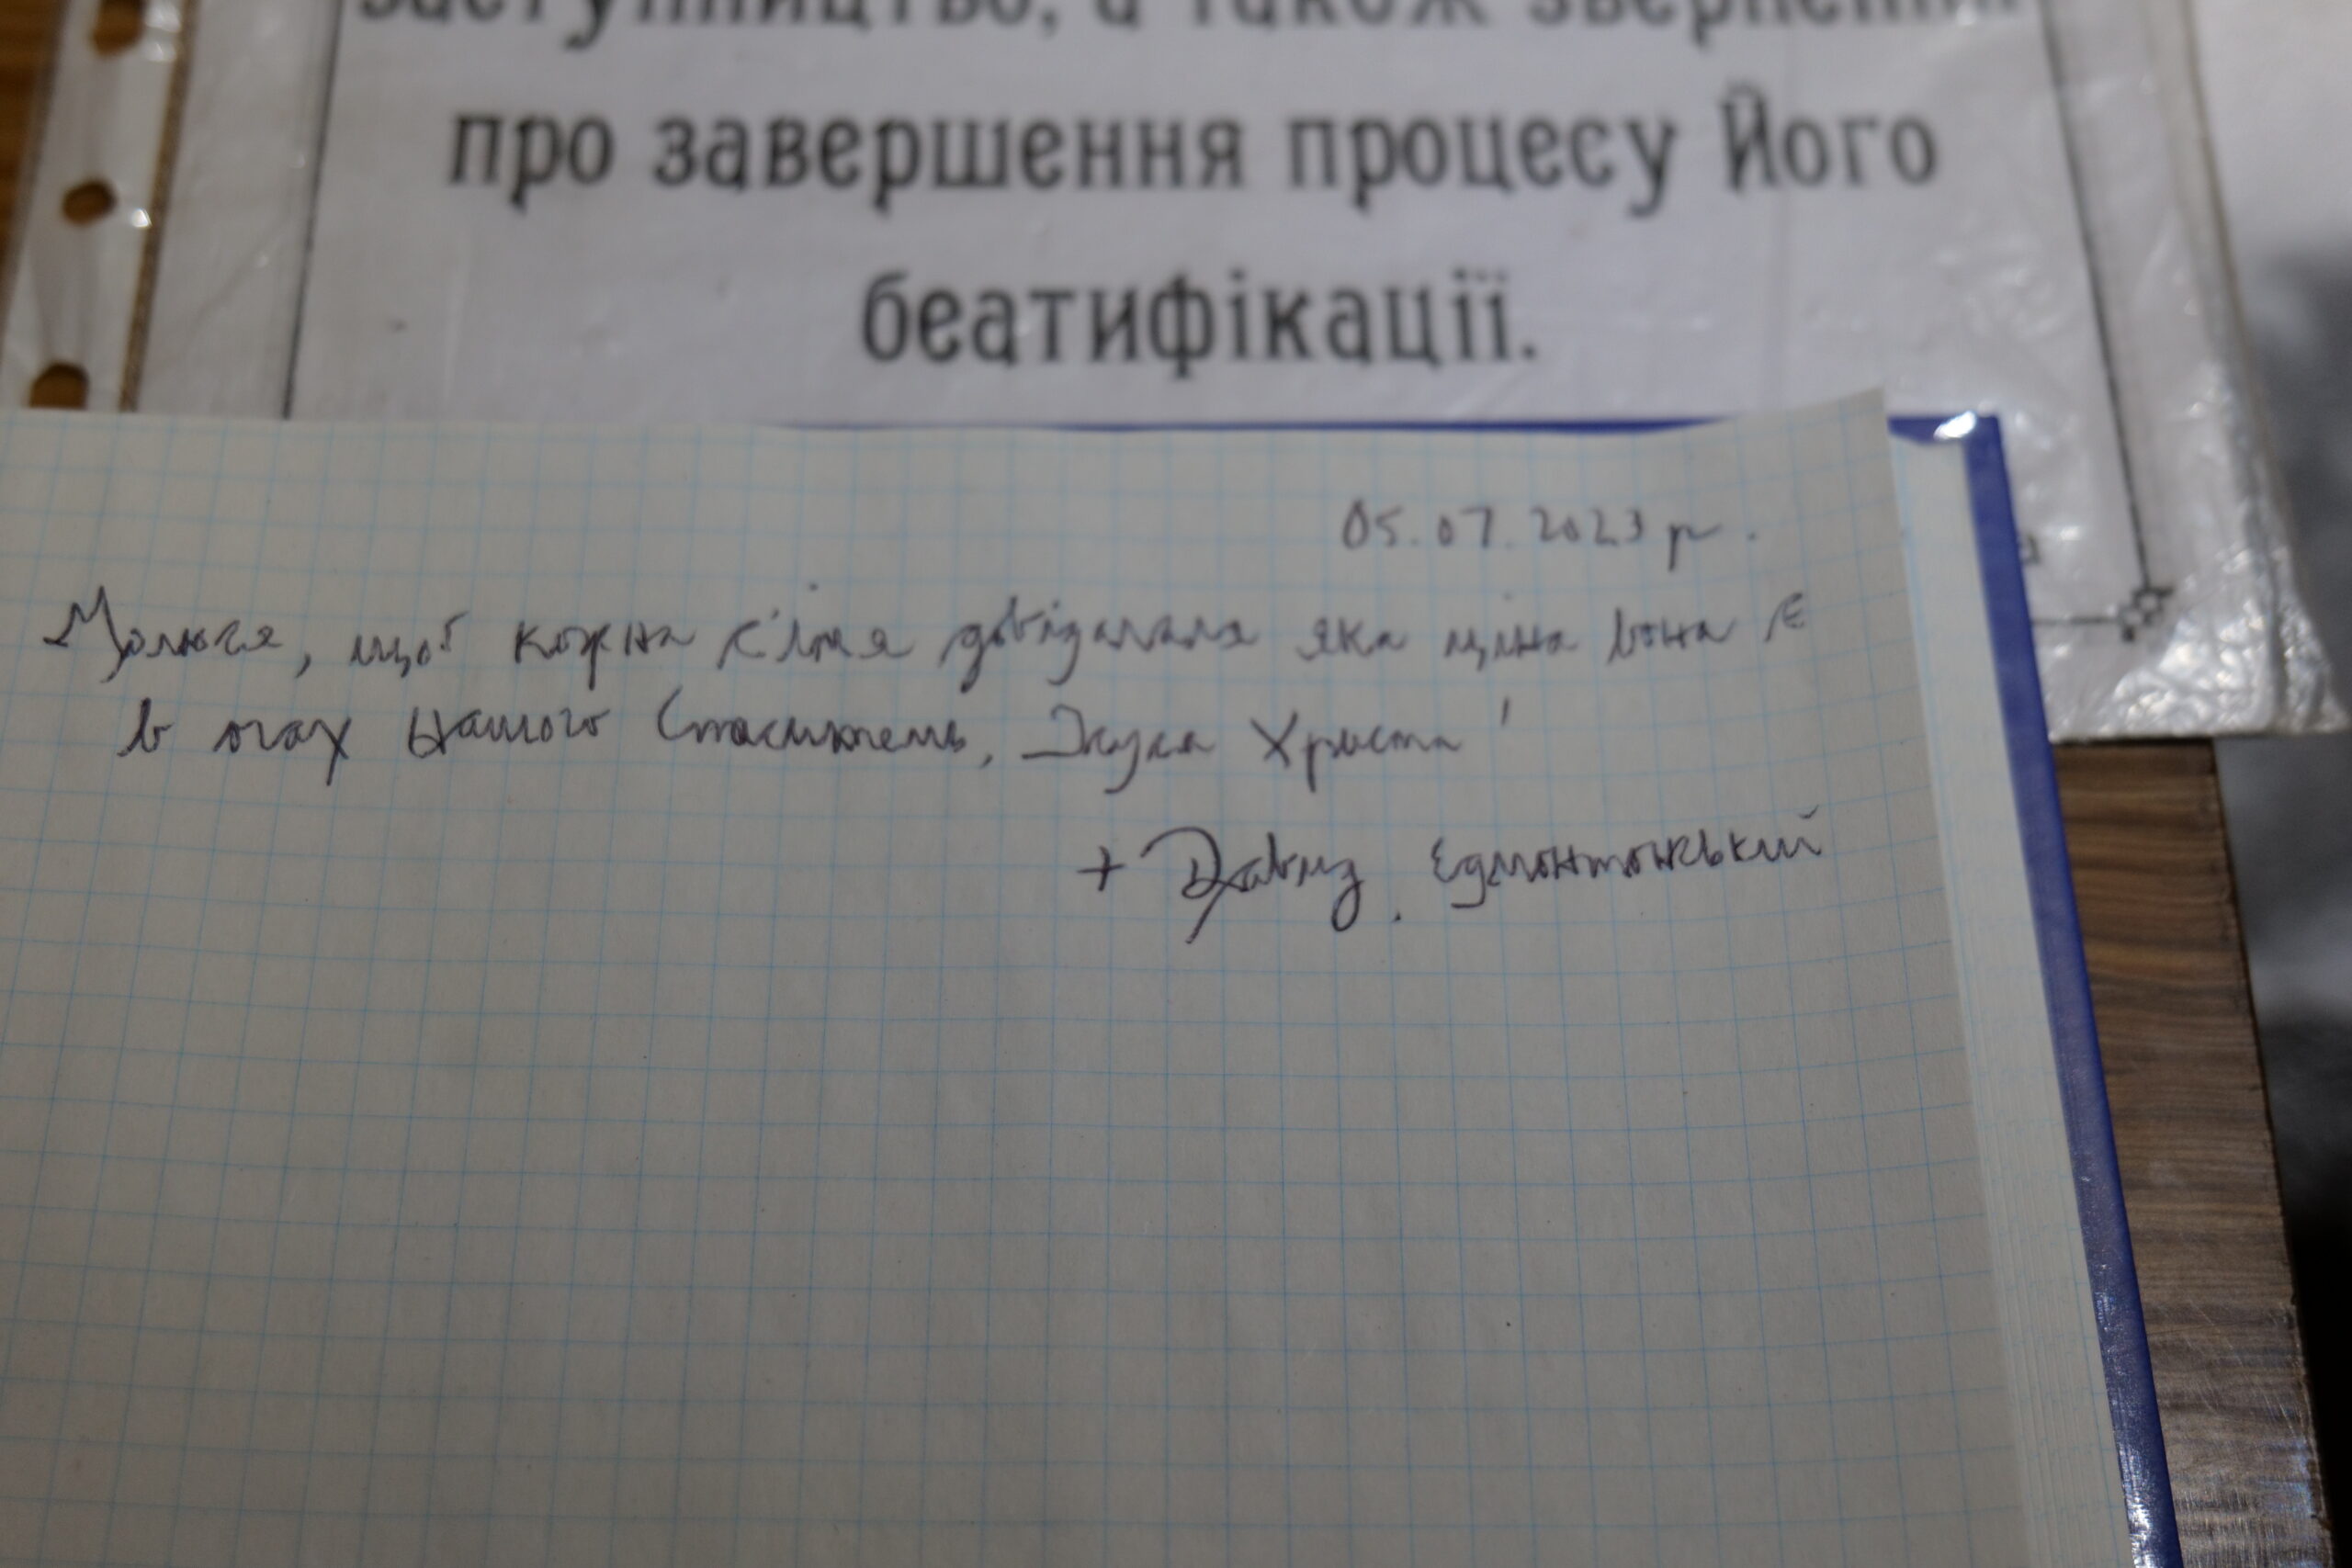 заступництво, а також звернення
про завершення процесу Його
беатифікації.
05.07.2023 р.
Молюся, щоб кожна сім'я довідалася яка цінна вона є
в очах нашого Спаситель, Ісуса Христа!
+ Давид, Едмонтонський